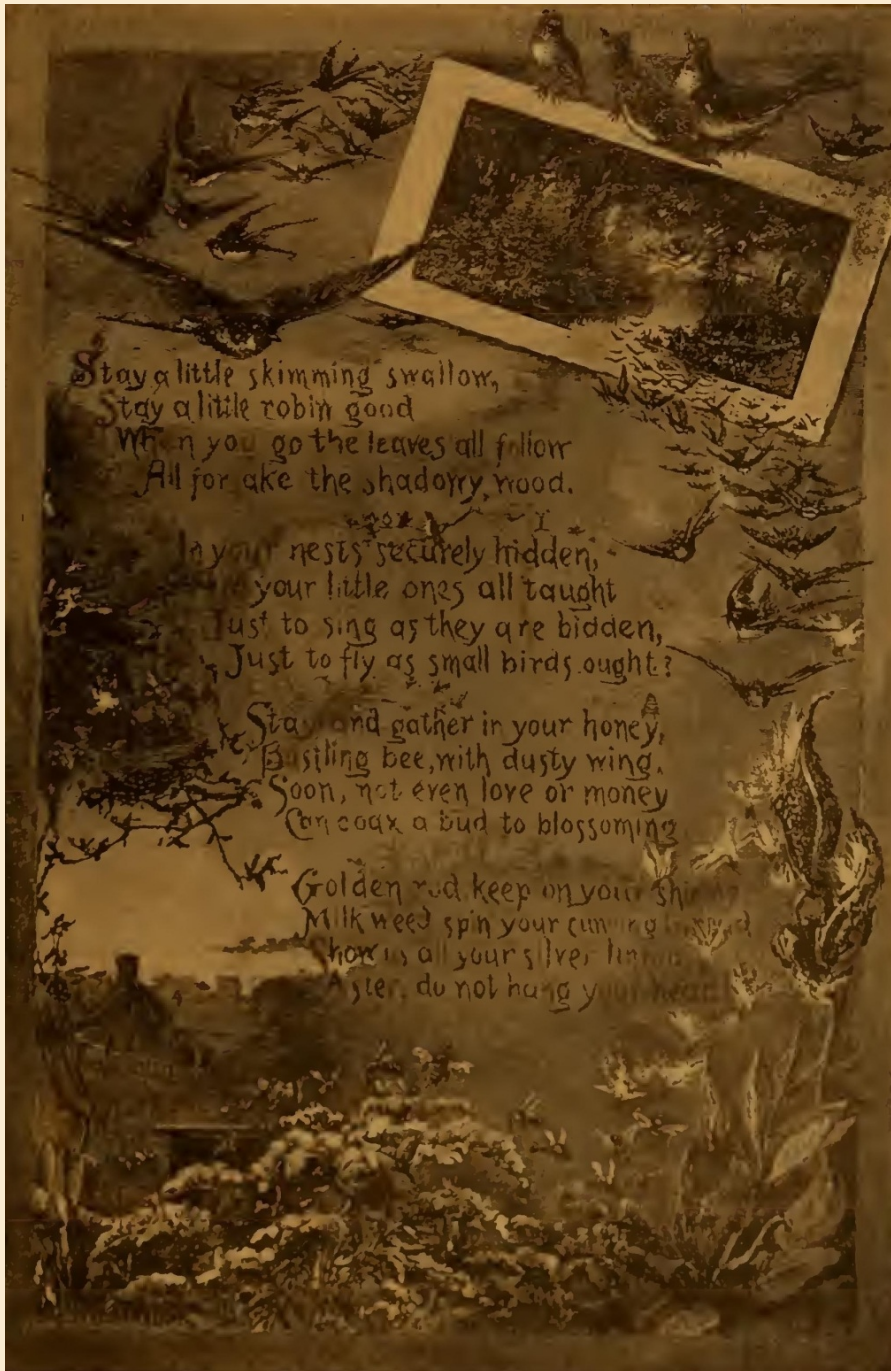 Stay a little skimming swallow,
Stay a little robin good
When you go the leaves all follow
All forsake the shadowy wood.
In your nests securely hidden,
your little ones all taught
Just to sing as they are bidden,
Just to fly as small birds ought?
Stay and gather in your honey,
Bustling bee, with dusty wing.
Soon, not even love or money
Can coax a bud to blossoming
Golden rod keep on your
Milk weed spin your cunning
Show us all your silver
Aster, do not hang your head